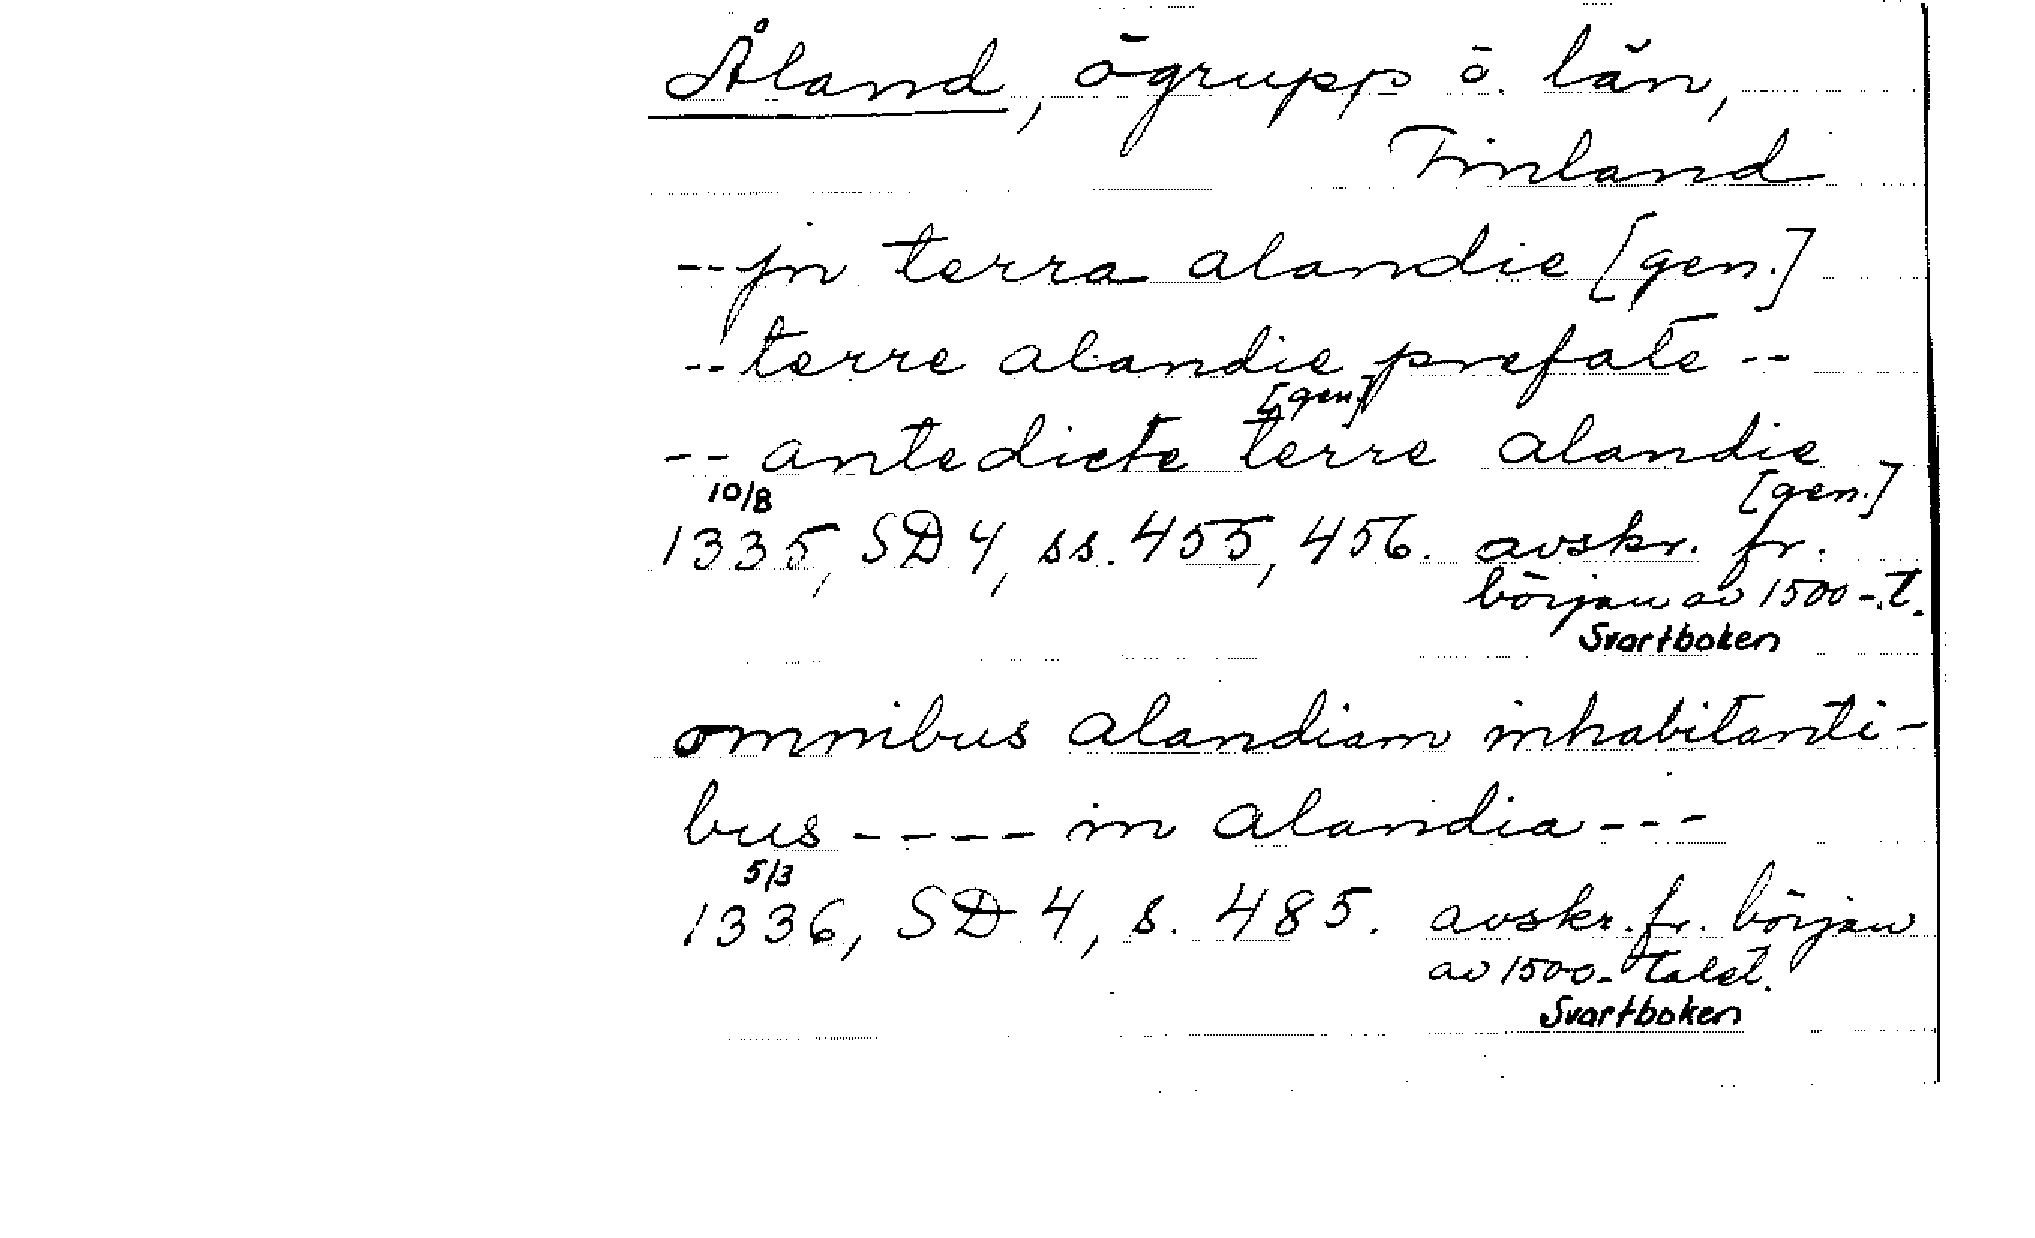 Åland, ögrupp o. län,
Finland
--jn terra alandie [gen.]
--terre alandie prefate --
[gen.]
-- antedicte terre alandie
[gen.]
10/8
1335, SD 4, ss. 455, 456. avskr. fr.
början av 1500-t.
Svartboken
omnibus alandiam inhabitanti-
bus ---- in alandia ---
5/3
1336, SD 4, s. 485. avskr. fr. början
av 1500-talet.
Svartboken